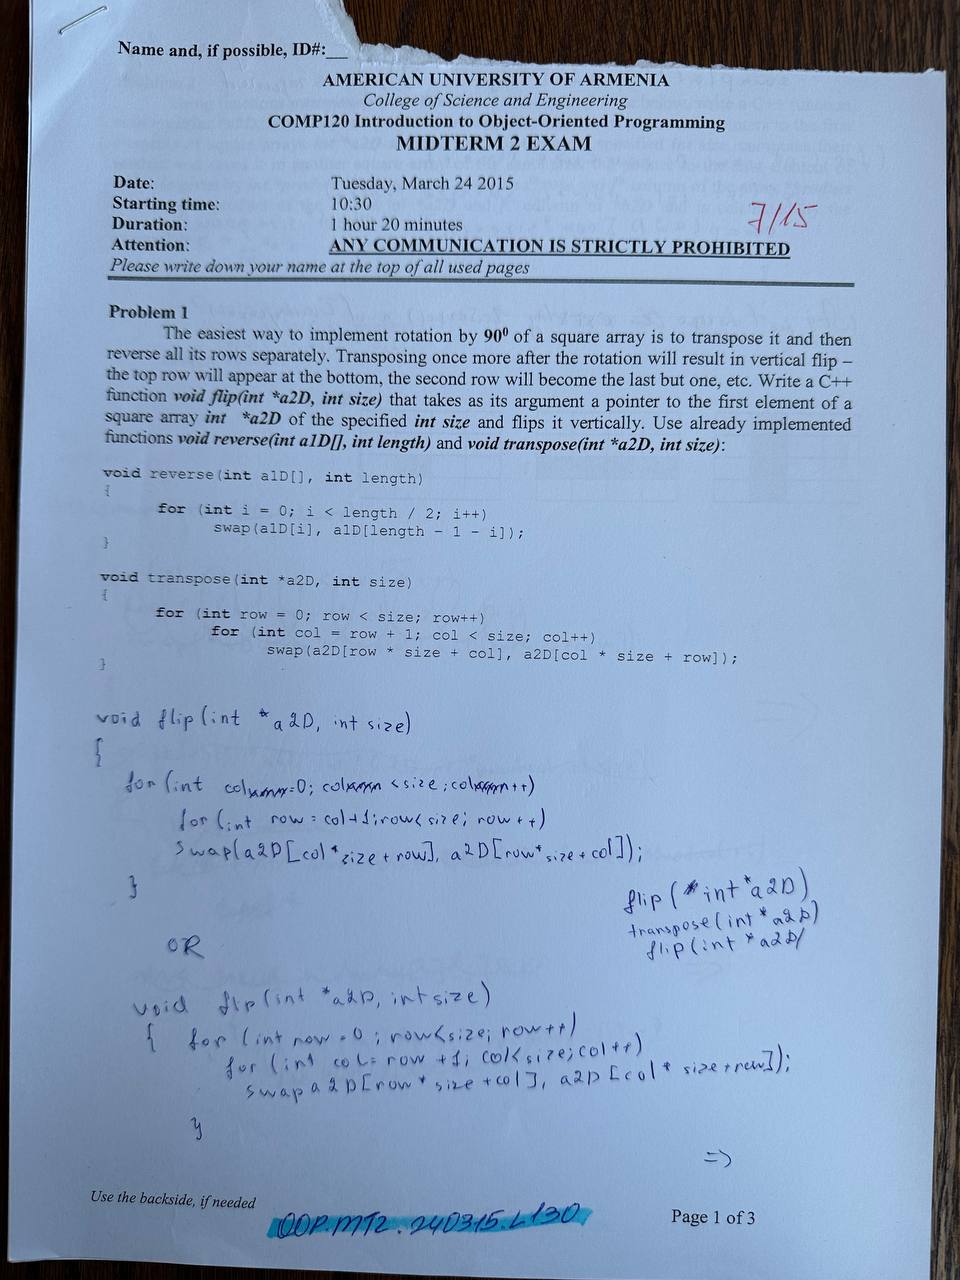 Name and, if possible, ID#:__
AMERICAN UNIVERSITY OF ARMENIA
College of Science and Engineering
COMP120 Introduction to Object-Oriented Programming
MIDTERM 2 EXAM
Date: Tuesday, March 24 2015
Starting time: 10:30
7/15
Duration: 1 hour 20 minutes
Attention: ANY COMMUNICATION IS STRICTLY PROHIBITED
Please write down your name at the top of all used pages
Problem 1
The easiest way to implement rotation by 90⁰ of a square array is to transpose it and then
reverse all its rows separately. Transposing once more after the rotation will result in vertical flip –
the top row will appear at the bottom, the second row will become the last but one, etc. Write a C++
function void flip(int *a2D, int size) that takes as its argument a pointer to the first element of a
square array int *a2D of the specified int size and flips it vertically. Use already implemented
functions void reverse(int a1D[], int length) and void transpose(int *a2D, int size):
void reverse(int a1D[], int length)
{
for (int i = 0; i < length / 2; i++)
swap(a1D[i], a1D[length - 1 - i]);
}
void transpose(int *a2D, int size)
{
for (int row = 0; row < size; row++)
for (int col = row + 1; col < size; col++)
swap(a2D[row * size + col], a2D[col * size + row]);
}
void flip(int *a2D, int size)
{
for (int col=0; col <size; col++)
for (int row = col+1; row< size; row++)
swap(a2D[col*size+row], a2D[row*size+col]);
}
flip (*int *a2D)
transpose(int *a2D)
flip(int *a2D/
OR
void flp(int *a2D, int size)
{ for (int row =0; row<size; row++)
for (int col= row +1; col<size; col++)
swap a2D[row* size +col], a2D [col* size+row]);
}
=>
Use the backside, if needed
OOP.MT2.240315.L130
Page 1 of 3